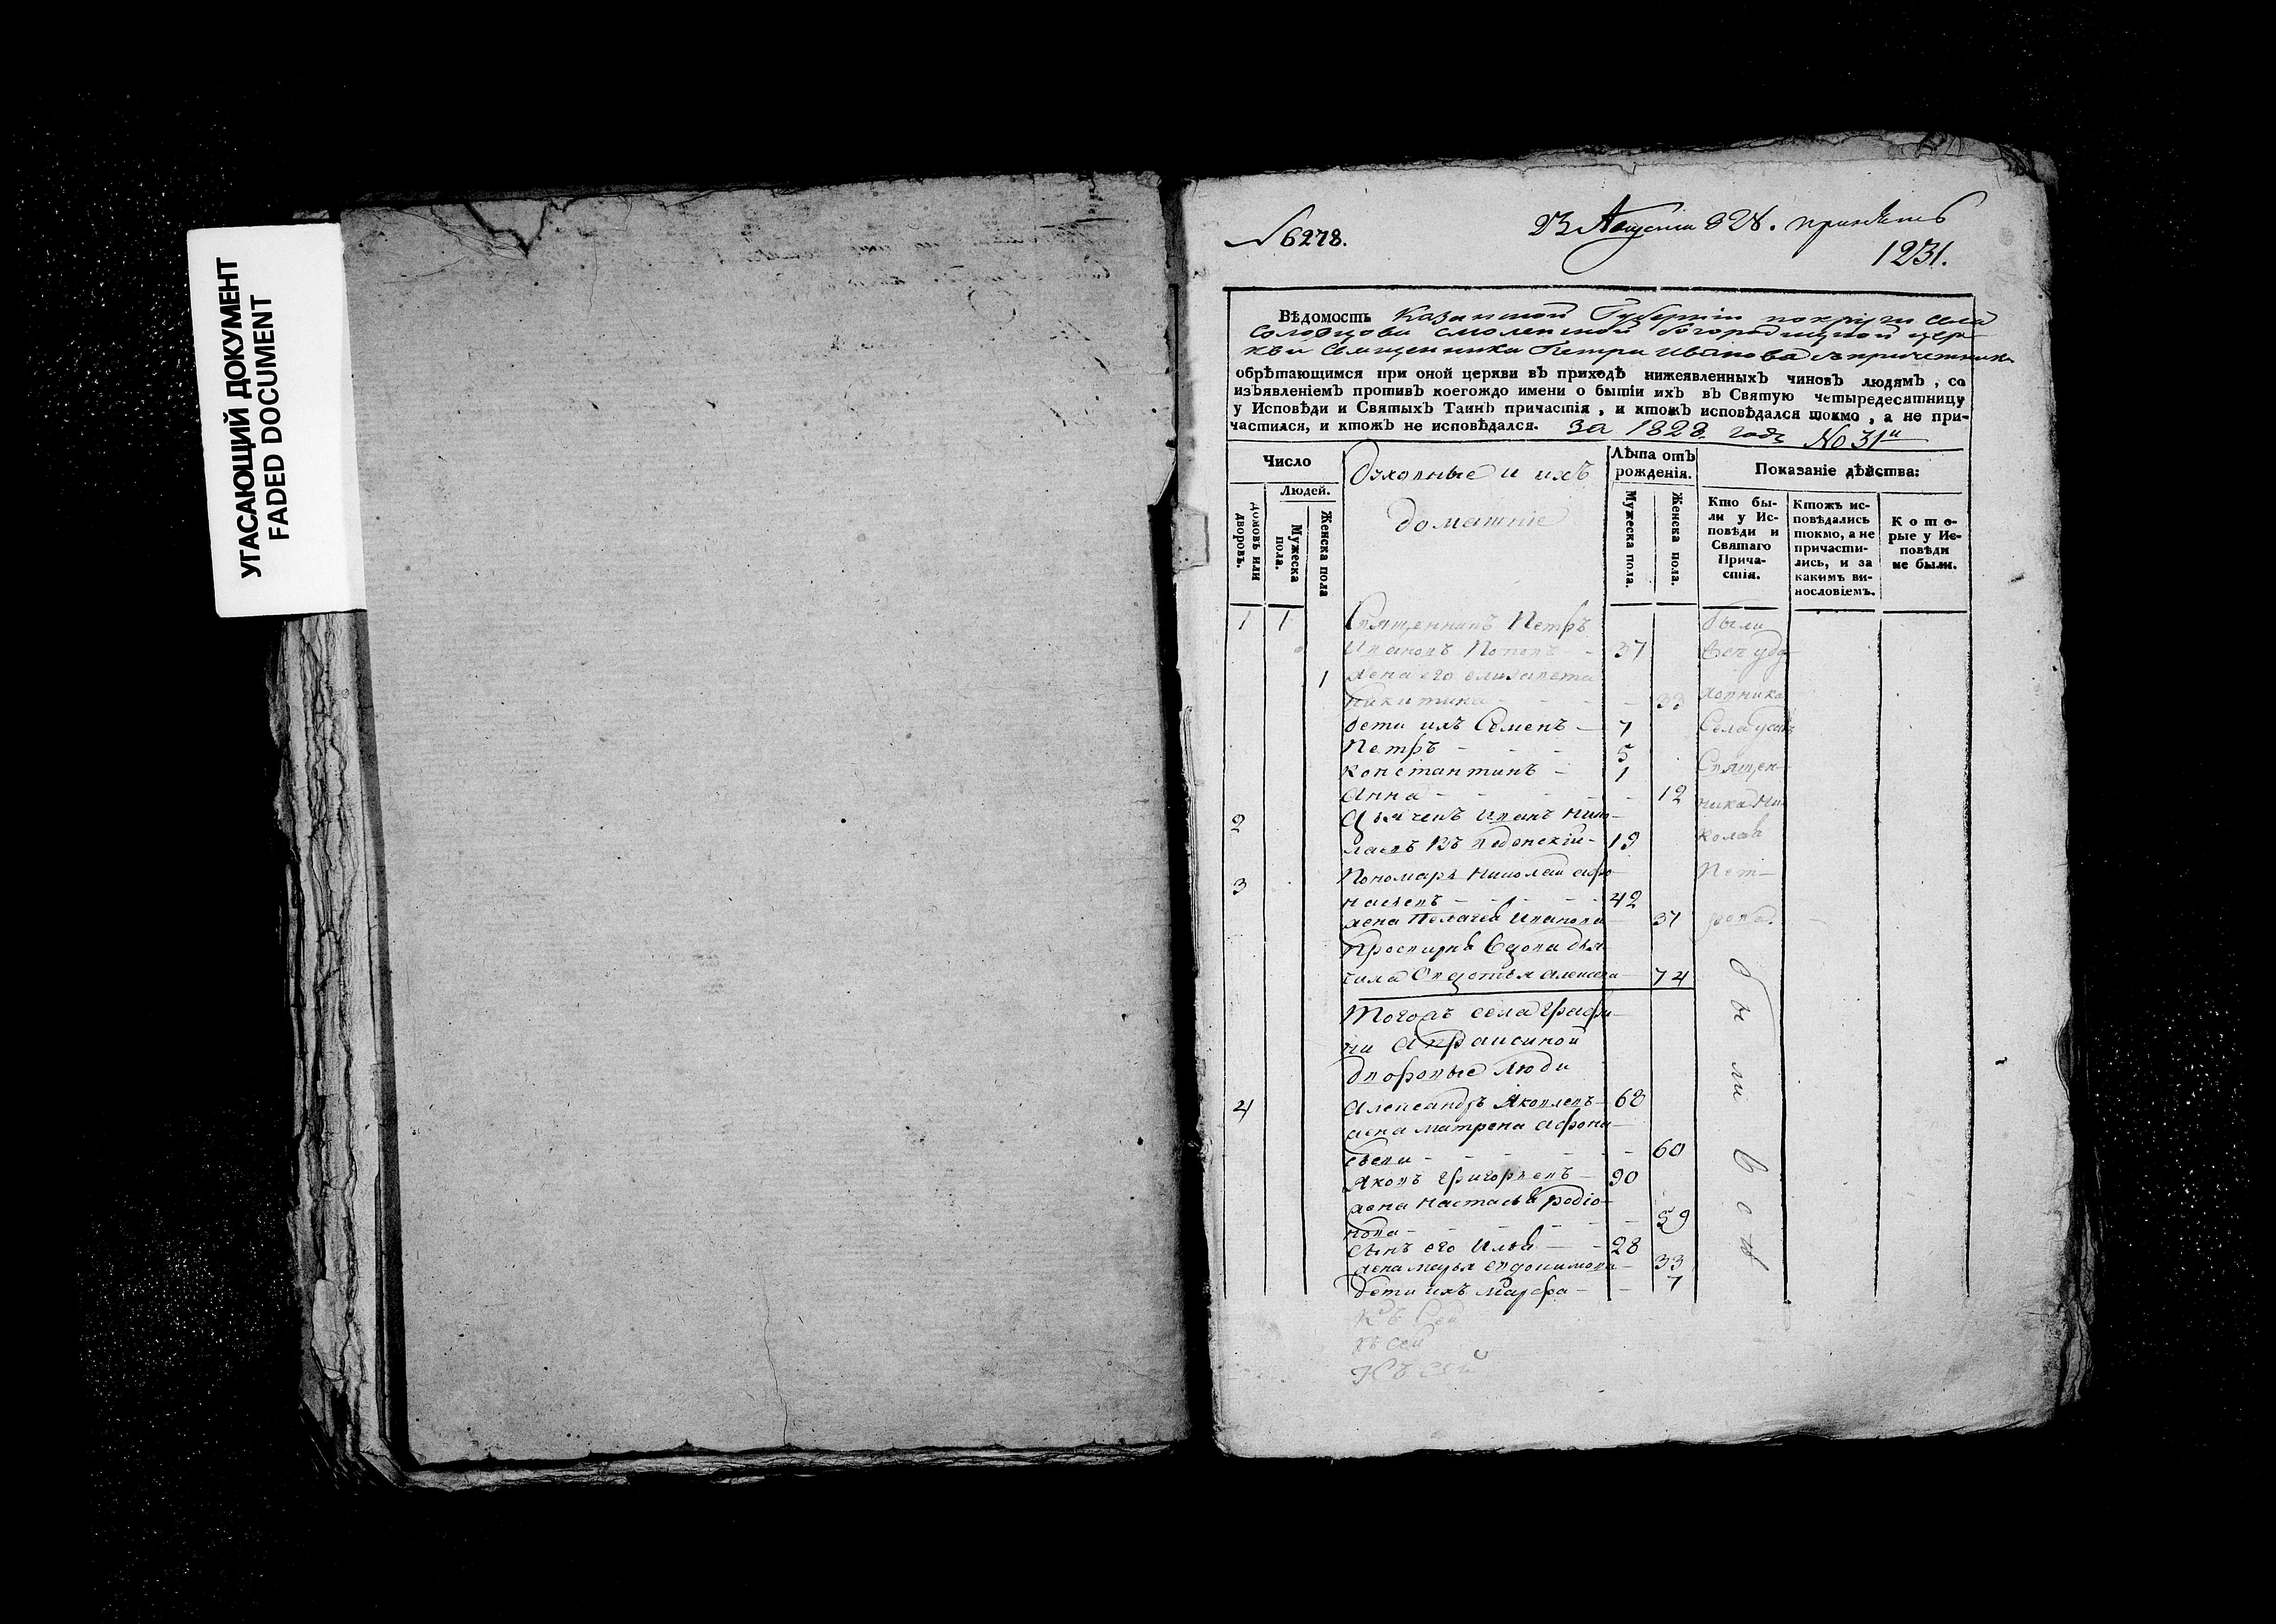 УГАСАЮЩИЙ ДОКУМЕНТ
FADED DOCUMENT
№ 6278.
23 Августа 828. принята
1231.
Вѣдомость Казанской Губернiи округи села
Солонцова Смоленской Богородицкой цер
кви Священника Петра Иванова съ причетники
обрѣтающимся при оной церкви въ приходѣ нижеявленныхъ чиновъ людямъ, со
изъявленіемъ противъ коегождо имени о бытіи ихъ въ Святую четыредесятницу
у Исповѣди и Святыхъ Таинъ причастія, и ктожъ исповѣдался токмо, а не при-
частился, и ктожъ не исповѣдался. за 1828. годъ № 31й
Число
Людей.
домовъ или дворовъ.
Мужеска пола.
Женска пола
Духовные и ихъ
домашніе
Лѣта отъ рожденія.
Мужеска пола.
Женска пола.
Показаніе дѣйства:
Кто бы-
ли у Ис-
повѣди и
Святаго
Прича-
стія.
Ктожъ ис-
повѣдались
токмо, а не
причасти-
лись, и за
какимъ ви-
нословіемъ.
Кото-
рые у Ис-
повѣди
не были.
1 1 Священникъ Петръ были
Ивановъ Поповъ - 37
1 жена его елизавета
Никитина - - - 33 ховника
дети ихъ Семенъ - 7 Села
Петръ - - - 5
Константинъ - 1 Священ-
Анна - - - 12 ника Ни
2 Дьячекъ Иванъ Нико-
лаевъ Въведенскій - 19 колая
3 Пономарь Николай афо- Пет-
насьевъ - - - 42
жена Пелагея Иванова 37 рова.
Просвирня вдова дья-
чиха Авдотья алексева 74
Тогожъ села графи-
ни Апраксиной
дворовые люди
4 Александръ Яковлевъ - 68
жена матрена афона-
сьева - - - 60
Яковъ григорьевъ - 90
жена настасья родіо-
нова - - - 59
сынъ его Илья - - 28
жена марья евдокимова - 33
дети ихъ марфа - - 7
были вся
Къ сей
къ сей
Къ сей